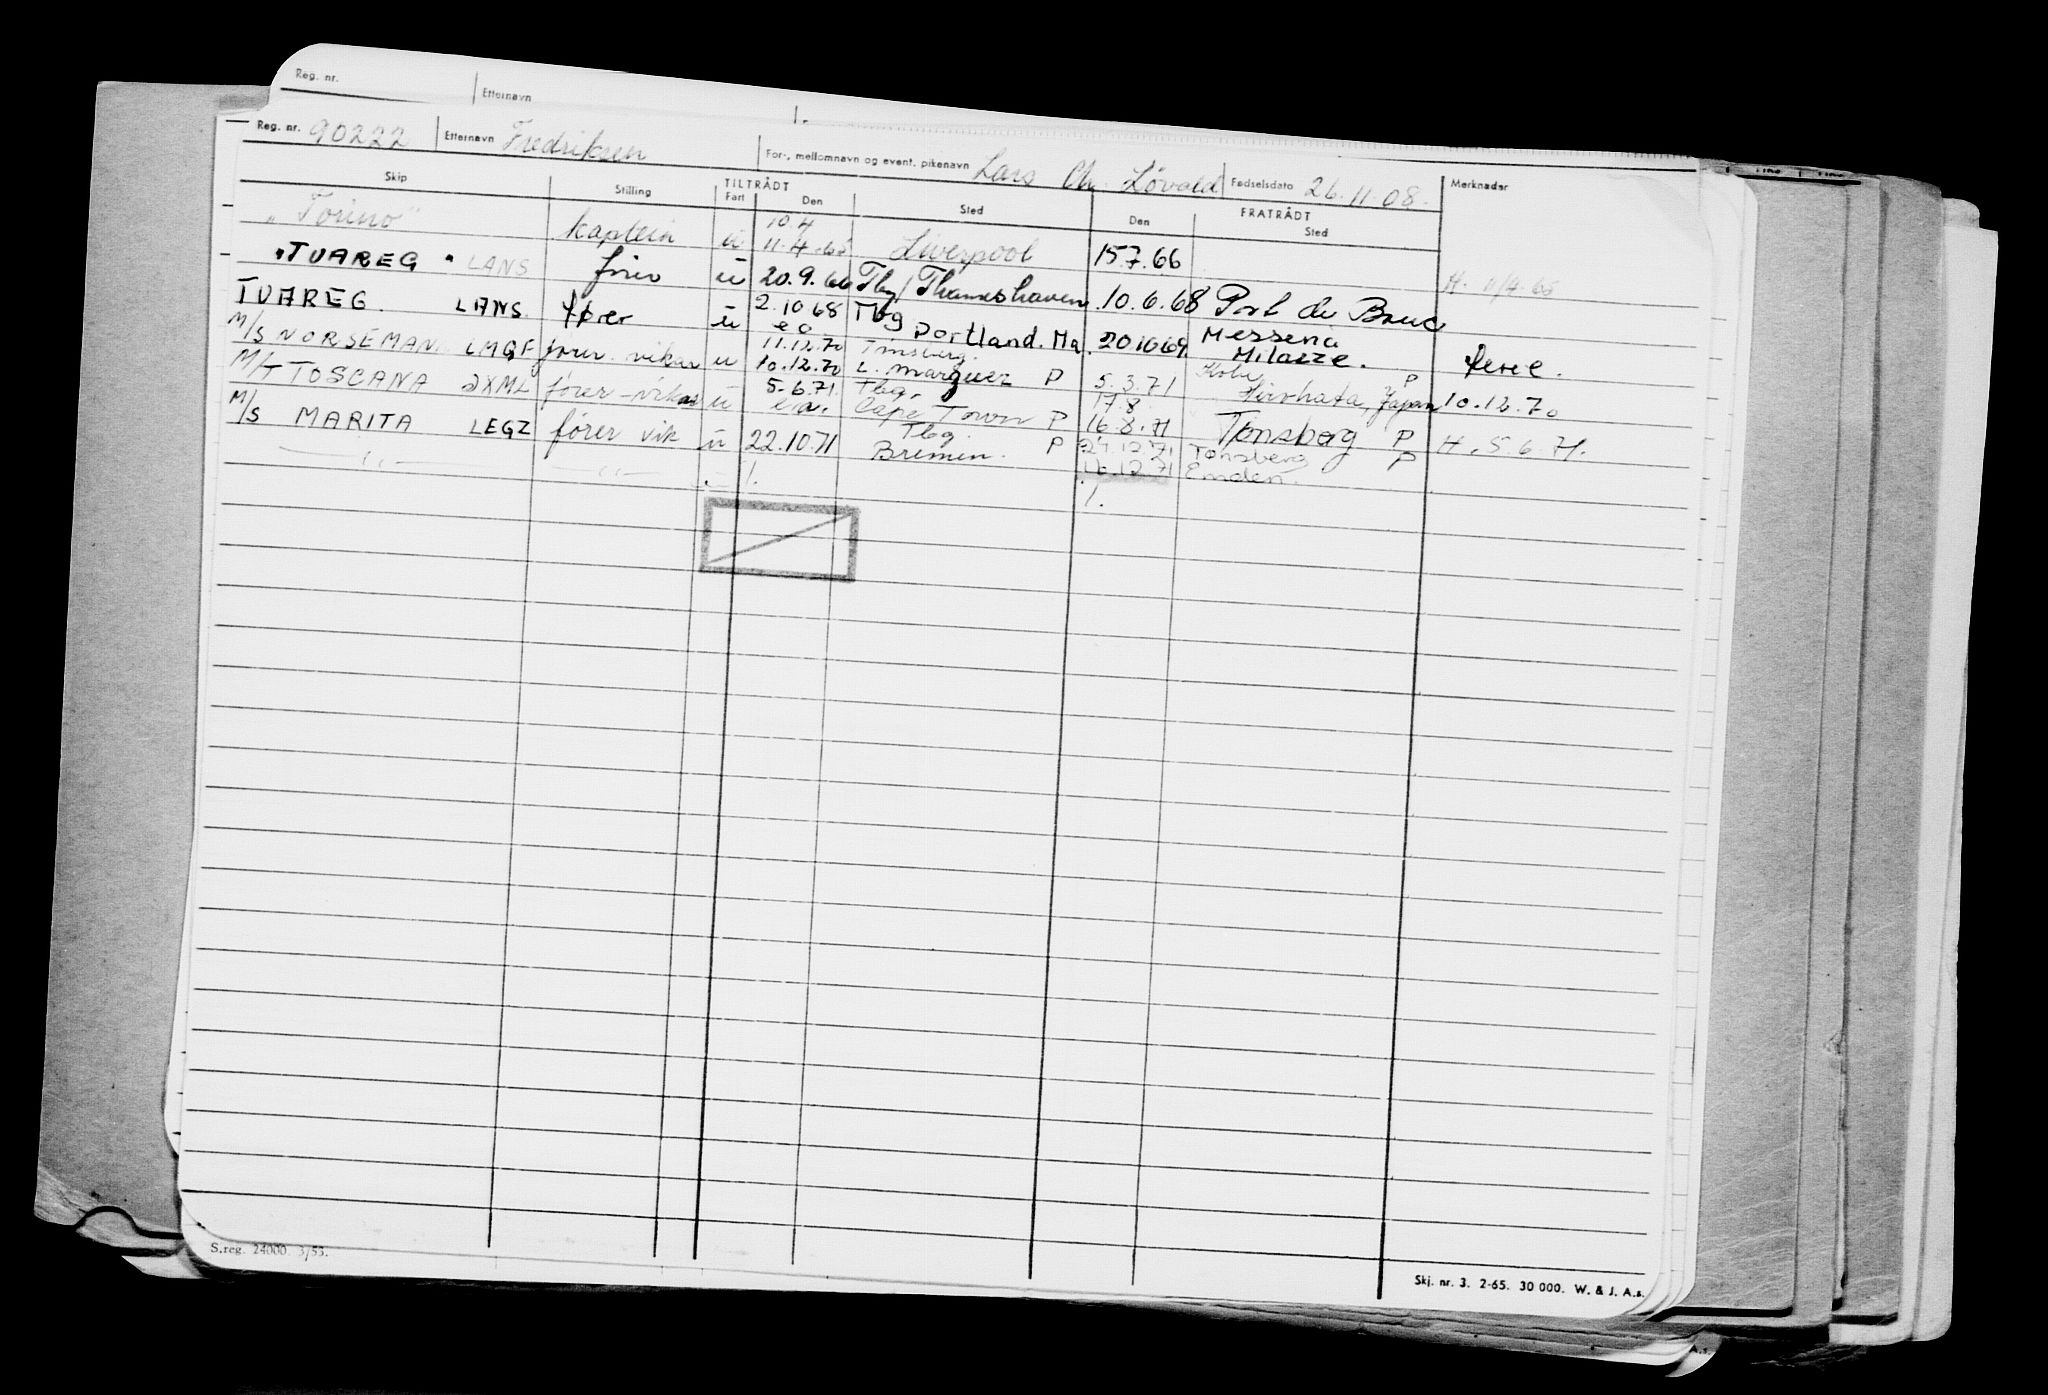 Reg. nr.
Etternavn
Reg. nr. 90222 Etternavn Fredriksen For-, mellomnavn og event. pikenavn Lars Chr. Lövald Fødselsdato 26.11.08. Merknader
Skip Stilling TILTRÅDT Fart Den Sted Den FRATRÅDT Sted
"Torino" kaptein u 10.4 11.4.65 Liverpool 15.7.66 H. 11/4-65
"TUAREG" LANS fører u 20.9.66 Tbg / Thameshaven 10.6.68 Port de Bouc
TUAREG. LANS. fører u 2.10 68 Tbg Portland. Ma. 20.10.69. Messena Milazze.
M/S NORSEMAN LMGF fører vikar u 11.12.70 10.12.70 Tønsberg. L. Marquez P 5.3.71 Kobe P Japan 10.12.70
M/T TOSCANA JXML fører-vikar u 5.6.71. Tbg. Cape Town P 17.8. 16.8.71 Tønsberg P H. 5.6.71.
M/S MARITA LEGZ fører vik u 22.10.71 Tbg. Bremen. P 24.12.71 Tønsberg P
— " — — " — . /. 16.12.71 Emden.
/.
S.reg. 24000. 3/53.
Skj. nr. 3. 2-65. 30 000. W. & J. A.s.
A.s.